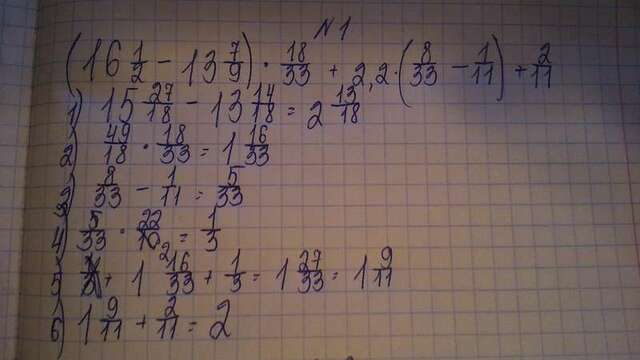 N 1
(16 1/2 - 13 7/9) · 18/33 + 2,2 · (8/33 - 1/11) + 2/11
1) 15 27/18 - 13 14/18 = 2 13/18
2) 49/18 · 18/33 = 1 16/33
3) 8/33 - 1/11 = 5/33
4) 5/33 · 22/10 = 1/3
5) + 1 16/33 + 1/3 = 1 27/33 = 1 9/11
6) 1 9/11 + 2/11 = 2